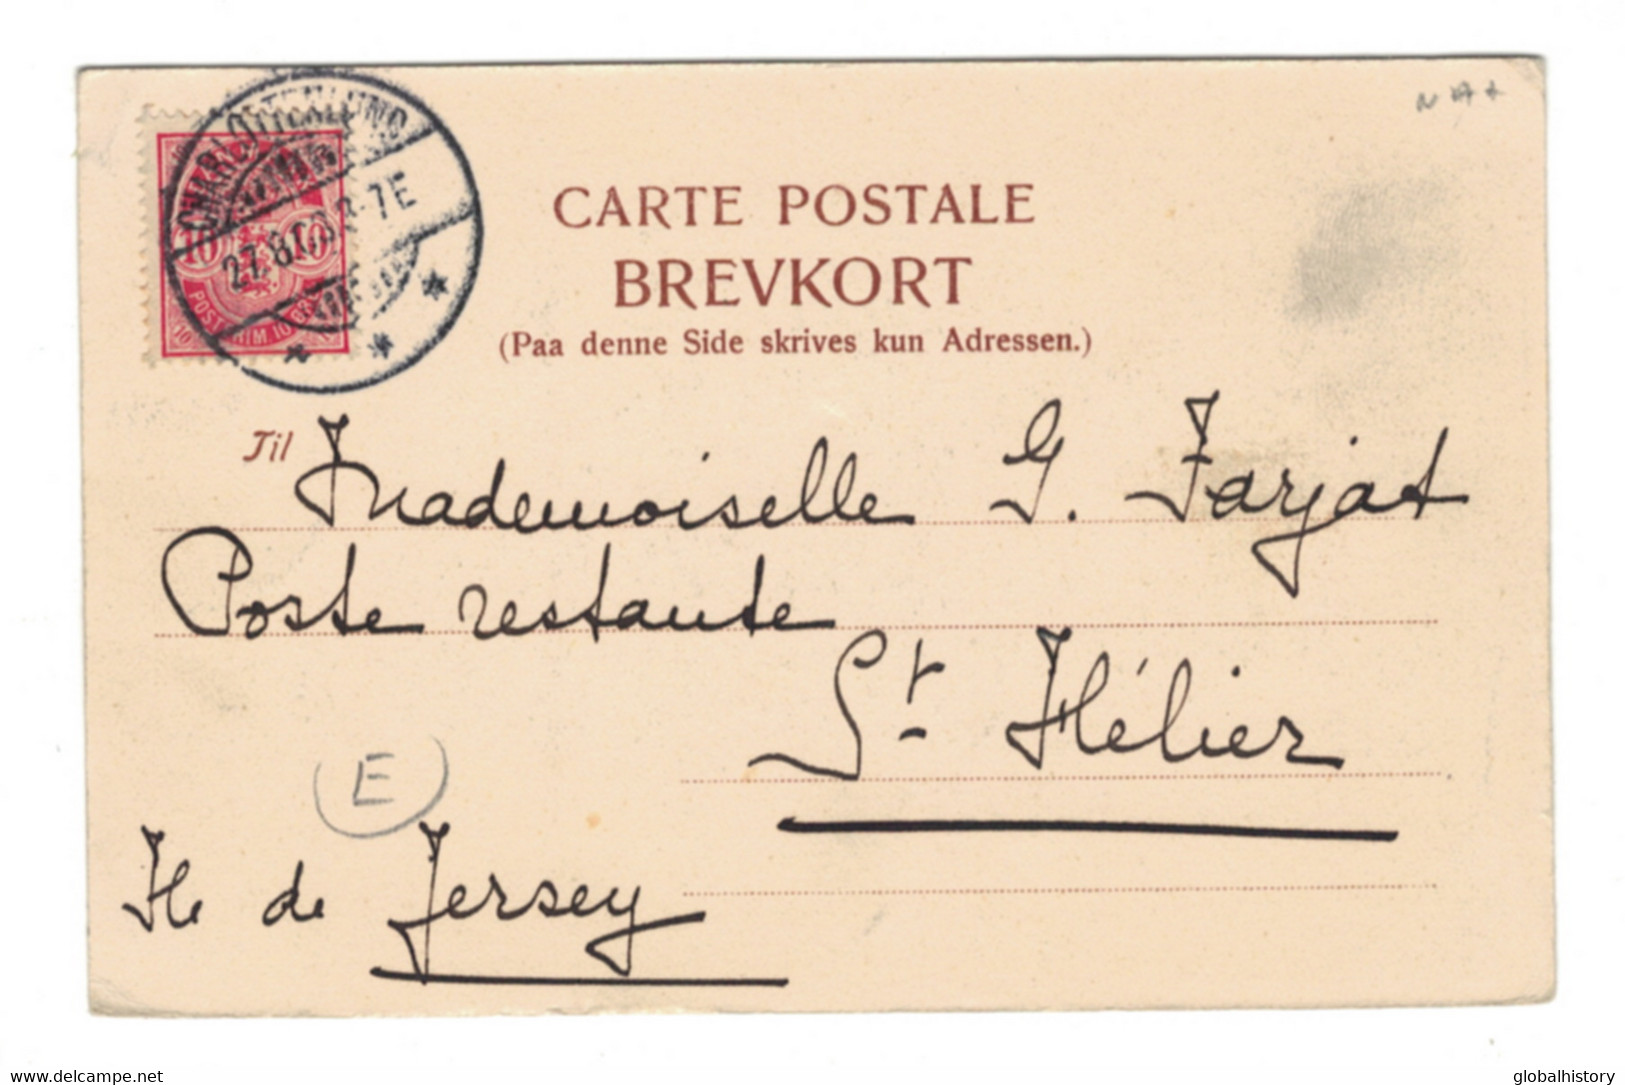 CHARLOTTENLUND
27.8.03.8-7E
10 10
CARTE POSTALE
BREVKORT
(Paa denne Side skrives kun Adressen.)
Til Mademoiselle G. Farjat
Poste restante
St. Hélier
E
Ile de Jersey
www.delcampe.net
globalhistory